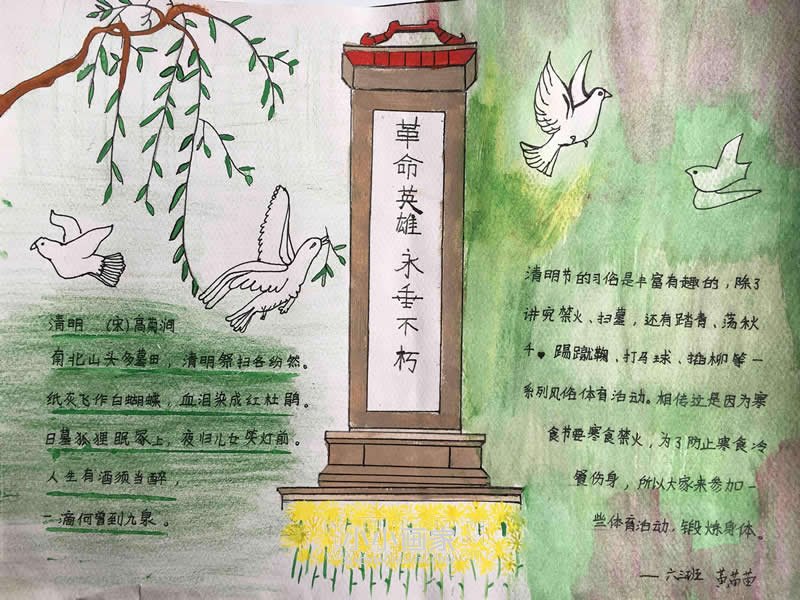 革命英雄永垂不朽
清明 (宋)高菊涧
南北山头多墓田，清明祭扫各纷然。
纸灰飞作白蝴蝶，血泪染成红杜鹃。
日墓狐狸眠冢上，夜归儿女笑灯前。
人生有酒须当醉，
一滴何曾到九泉。
清明节的习俗是丰富有趣的，除了
讲究禁火、扫墓，还有踏青、荡秋
千。踢蹴鞠、打马球、插柳等一
系列风俗体育活动。相传这是因为寒
食节要寒食禁火，为了防止寒食冷
餐伤身，所以大家来参加一
些体育活动，锻炼身体。
— 六三班 黄苗苗
小小画家